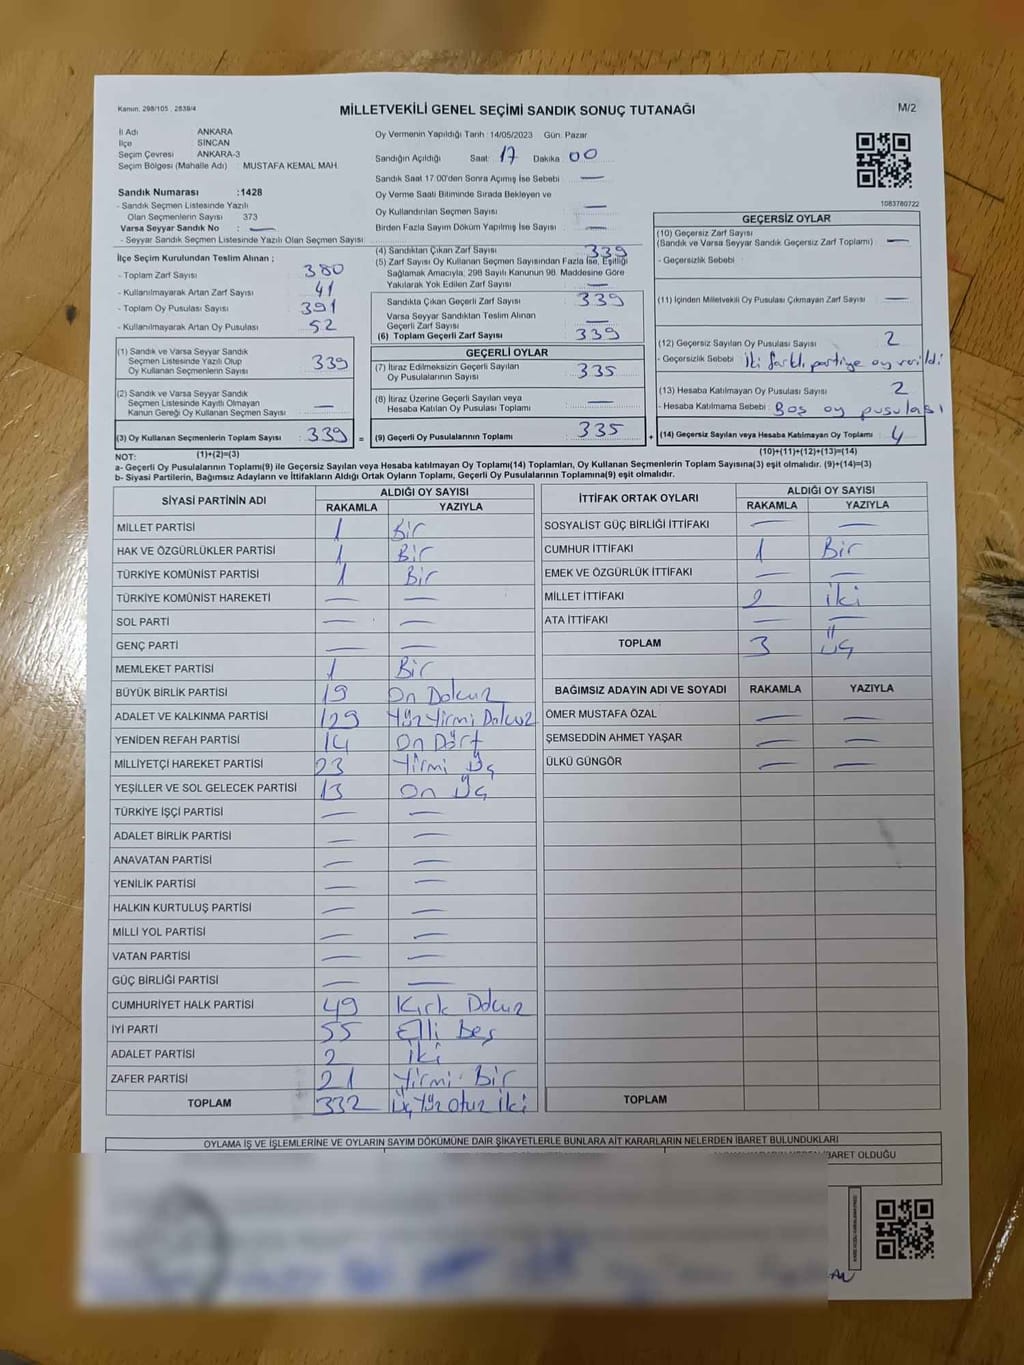 Kanun. 298/105 , 2839/4
MİLLETVEKİLİ GENEL SEÇİMİ SANDIK SONUÇ TUTANAĞI
M/2
İl Adı ANKARA
İlçe SİNCAN
Seçim Çevresi ANKARA-3
Seçim Bölgesi (Mahalle Adı) MUSTAFA KEMAL MAH.
Sandık Numarası :1428
- Sandık Seçmen Listesinde Yazılı
Olan Seçmenlerin Sayısı 373
Varsa Seyyar Sandık No : —
- Seyyar Sandık Seçmen Listesinde Yazılı Olan Seçmen Sayısı:
Oy Vermenin Yapıldığı Tarih : 14/05/2023 Gün: Pazar
Sandığın Açıldığı Saat: 17 Dakika 00
Sandık Saat 17.00'den Sonra Açılmış İse Sebebi —
Oy Verme Saati Bitiminde Sırada Bekleyen ve
Oy Kullandırılan Seçmen Sayısı —
Birden Fazla Sayım Döküm Yapılmış İse Sayısı —
1083780722
İlçe Seçim Kurulundan Teslim Alınan ;
- Toplam Zarf Sayısı 380
- Kullanılmayarak Artan Zarf Sayısı 41
- Toplam Oy Pusulası Sayısı 391
- Kullanılmayarak Artan Oy Pusulası 52
(1) Sandık ve Varsa Seyyar Sandık
Seçmen Listesinde Yazılı Olup
Oy Kullanan Seçmenlerin Sayısı 339
(2) Sandık ve Varsa Seyyar Sandık
Seçmen Listesinde Kayıtlı Olmayan
Kanun Gereği Oy Kullanan Seçmen Sayısı —
(3) Oy Kullanan Seçmenlerin Toplam Sayısı 339 =
(4) Sandıktan Çıkan Zarf Sayısı 339
(5) Zarf Sayısı Oy Kullanan Seçmen Sayısından Fazla İse, Eşitliği
Sağlamak Amacıyla, 298 Sayılı Kanunun 98. Maddesine Göre
Yakılarak Yok Edilen Zarf Sayısı —
Sandıkta Çıkan Geçerli Zarf Sayısı 339
Varsa Seyyar Sandıktan Teslim Alınan
Geçerli Zarf Sayısı —
(6) Toplam Geçerli Zarf Sayısı 339
GEÇERLİ OYLAR
(7) İtiraz Edilmeksizin Geçerli Sayılan
Oy Pusulalarının Sayısı 335
(8) İtiraz Üzerine Geçerli Sayılan veya
Hesaba Katılan Oy Pusulası Toplamı —
(9) Geçerli Oy Pusulalarının Toplamı 335 +
GEÇERSİZ OYLAR
(10) Geçersiz Zarf Sayısı
(Sandık ve Varsa Seyyar Sandık Geçersiz Zarf Toplamı) —
- Geçersizlik Sebebi
(11) İçinden Milletvekili Oy Pusulası Çıkmayan Zarf Sayısı —
(12) Geçersiz Sayılan Oy Pusulası Sayısı 2
- Geçersizlik Sebebi : İki farklı partiye oy verildi
(13) Hesaba Katılmayan Oy Pusulası Sayısı 2
- Hesaba Katılmama Sebebi : Boş oy pusulası
(14) Geçersiz Sayılan veya Hesaba Katılmayan Oy Toplamı 4
NOT: (1)+(2)=(3) (10)+(11)+(12)+(13)=(14)
a- Geçerli Oy Pusulalarının Toplamı(9) ile Geçersiz Sayılan veya Hesaba katılmayan Oy Toplamı(14) Toplamları, Oy Kullanan Seçmenlerin Toplam Sayısına(3) eşit olmalıdır. (9)+(14)=(3)
b- Siyasi Partilerin, Bağımsız Adayların ve İttifakların Aldığı Ortak Oyların Toplamı, Geçerli Oy Pusulalarının Toplamına(9) eşit olmalıdır.
SİYASİ PARTİNİN ADI ALDIĞI OY SAYISI
RAKAMLA YAZIYLA
MİLLET PARTİSİ 1 Bir
HAK VE ÖZGÜRLÜKLER PARTİSİ 1 Bir
TÜRKİYE KOMÜNİST PARTİSİ 1 Bir
TÜRKİYE KOMÜNİST HAREKETİ — —
SOL PARTİ — —
GENÇ PARTİ — —
MEMLEKET PARTİSİ 1 Bir
BÜYÜK BİRLİK PARTİSİ 19 On Dokuz
ADALET VE KALKINMA PARTİSİ 129 Yüz Yirmi Dokuz
YENİDEN REFAH PARTİSİ 14 On Dört
MİLLİYETÇİ HAREKET PARTİSİ 23 Yirmi Üç
YEŞİLLER VE SOL GELECEK PARTİSİ 13 On Üç
TÜRKİYE İŞÇİ PARTİSİ — —
ADALET BİRLİK PARTİSİ — —
ANAVATAN PARTİSİ — —
YENİLİK PARTİSİ — —
HALKIN KURTULUŞ PARTİSİ — —
MİLLİ YOL PARTİSİ — —
VATAN PARTİSİ — —
GÜÇ BİRLİĞİ PARTİSİ — —
CUMHURİYET HALK PARTİSİ 49 Kırk Dokuz
İYİ PARTİ 55 Elli Beş
ADALET PARTİSİ 2 İki
ZAFER PARTİSİ 21 Yirmi Bir
TOPLAM 332 Üç Yüz Otuz İki
İTTİFAK ORTAK OYLARI ALDIĞI OY SAYISI
RAKAMLA YAZIYLA
SOSYALİST GÜÇ BİRLİĞİ İTTİFAKI — —
CUMHUR İTTİFAKI 1 Bir
EMEK VE ÖZGÜRLÜK İTTİFAKI — —
MİLLET İTTİFAKI 2 İki
ATA İTTİFAKI — —
TOPLAM 3 Üç
BAĞIMSIZ ADAYIN ADI VE SOYADI RAKAMLA YAZIYLA
ÖMER MUSTAFA ÖZAL — —
ŞEMSEDDİN AHMET YAŞAR — —
ÜLKÜ GÜNGÖR — —
TOPLAM
OYLAMA İŞ VE İŞLEMLERİNE VE OYLARIN SAYIM DÖKÜMÜNE DAİR ŞİKAYETLERLE BUNLARA AİT KARARLARIN NELERDEN İBARET BULUNDUKLARI
İBARET OLDUĞU